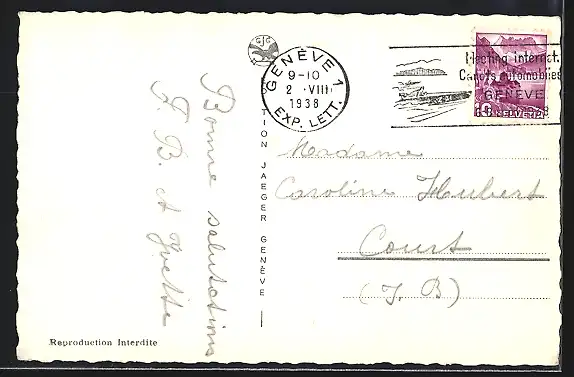 Bonne salutations
F. B. et Yvette
Reproduction Interdite
TION JAEGER GENÈVE
GENÈVE 1
9-10
2 · VIII
1938
EXP. LETT.
Meeting internat.
Canots automobiles
GENÈVE
1938
HELVETIA
Madame
Caroline Haubert
Court
(J. B)